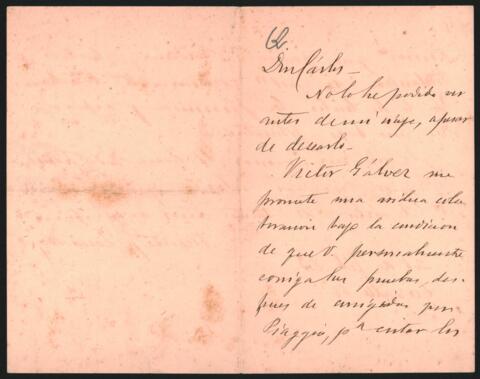 62.
Don Cárlos –
No lo he podido ver
antes de mi viaje, a pesar
de desearlo –
Victor Gálvez me
promete una asidua cola
boracion bajo la condicion
de que V. personalmente
corrija las pruebas, des-
pues de corrigidas por
Piaggio, pª evitar los